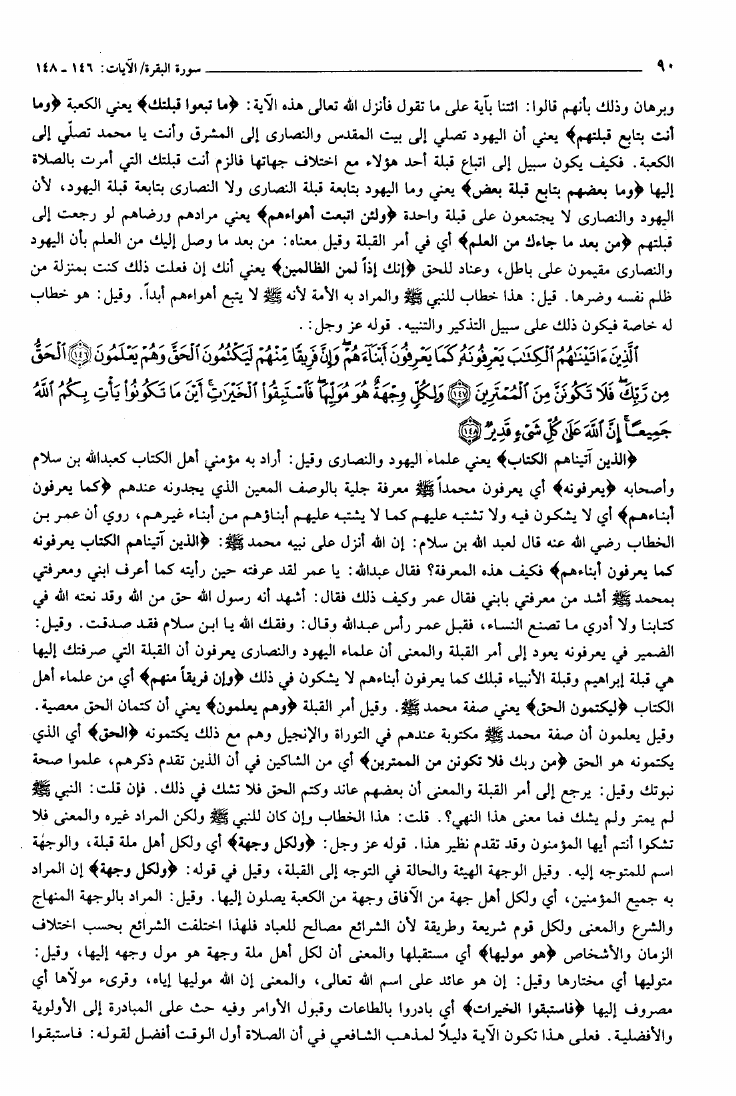 ٩٠ سورة البقرة/ الآيات: ١٤٦ ـ ١٤٨
وبرهان وذلك بأنهم قالوا: ائتنا بآية على ما تقول فأنزل الله تعالى هذه الآية: ﴿ما تبعوا قبلتك﴾ يعني الكعبة ﴿وما
أنت بتابع قبلتهم﴾ يعني أن اليهود تصلي إلى بيت المقدس والنصارى إلى المشرق وأنت يا محمد تصلّي إلى
الكعبة. فكيف يكون سبيل إلى اتباع قبلة أحد هؤلاء مع اختلاف جهاتها فالزم أنت قبلتك التي أمرت بالصلاة
إليها ﴿وما بعضهم بتابع قبلة بعض﴾ يعني وما اليهود بتابعة قبلة النصارى ولا النصارى بتابعة قبلة اليهود، لأن
اليهود والنصارى لا يجتمعون على قبلة واحدة ﴿ولئن اتبعت أهواءهم﴾ يعني مرادهم ورضاهم لو رجعت إلى
قبلتهم ﴿من بعد ما جاءك من العلم﴾ أي في أمر القبلة وقيل معناه: من بعد ما وصل إليك من العلم بأن اليهود
والنصارى مقيمون على باطل، وعناد للحق ﴿إنك إذاً لمن الظالمين﴾ يعني أنك إن فعلت ذلك كنت بمنزلة من
ظلم نفسه وضرها. قيل: هذا خطاب للنبي ﷺ والمراد به الأمة لأنه ﷺ لا يتبع أهواءهم أبداً. وقيل: هو خطاب
له خاصة فيكون ذلك على سبيل التذكير والتنبيه. قوله عز وجل: .
ٱلَّذِينَ ءَاتَيْنَٰهُمُ ٱلْكِتَٰبَ يَعْرِفُونَهُۥ كَمَا يَعْرِفُونَ أَبْنَآءَهُمْۖ وَإِنَّ فَرِيقًا مِّنْهُمْ لَيَكْتُمُونَ ٱلْحَقَّ وَهُمْ يَعْلَمُونَ ﴿١٤٦﴾ ٱلْحَقُّ
مِن رَّبِّكَۖ فَلَا تَكُونَنَّ مِنَ ٱلْمُمْتَرِينَ ﴿١٤٧﴾ وَلِكُلٍّ وِجْهَةٌ هُوَ مُوَلِّيهَاۖ فَٱسْتَبِقُوا۟ ٱلْخَيْرَٰتِۚ أَيْنَ مَا تَكُونُوا۟ يَأْتِ بِكُمُ ٱللَّهُ
جَمِيعًاۚ إِنَّ ٱللَّهَ عَلَىٰ كُلِّ شَىْءٍ قَدِيرٌ ﴿١٤٨﴾
﴿الذين آتيناهم الكتاب﴾ يعني علماء اليهود والنصارى وقيل: أراد به مؤمني أهل الكتاب كعبدالله بن سلام
وأصحابه ﴿يعرفونه﴾ أي يعرفون محمداً ﷺ معرفة جلية بالوصف المعين الذي يجدونه عندهم ﴿كما يعرفون
أبناءهم﴾ أي لا يشكون فيه ولا تشتبه عليهم كما لا يشتبه عليهم أبناؤهم من أبناء غيرهم، روي أن عمر بن
الخطاب رضي الله عنه قال لعبد الله بن سلام: إن الله أنزل على نبيه محمد ﷺ: ﴿الذين آتيناهم الكتاب يعرفونه
كما يعرفون أبناءهم﴾ فكيف هذه المعرفة؟ فقال عبدالله: يا عمر لقد عرفته حين رأيته كما أعرف ابني ومعرفتي
بمحمد ﷺ أشد من معرفتي بابني فقال عمر وكيف ذلك فقال: أشهد أنه رسول الله حق من الله وقد نعته الله في
كتابنا ولا أدري ما تصنع النساء، فقبل عمر رأس عبدالله وقال: وفقك الله يا ابن سلام فقد صدقت. وقيل:
الضمير في يعرفونه يعود إلى أمر القبلة والمعنى أن علماء اليهود والنصارى يعرفون أن القبلة التي صرفتك إليها
هي قبلة إبراهيم وقبلة الأنبياء قبلك كما يعرفون أبناءهم لا يشكون في ذلك ﴿وإن فريقاً منهم﴾ أي من علماء أهل
الكتاب ﴿ليكتمون الحق﴾ يعني صفة محمد ﷺ. وقيل أمر القبلة ﴿وهم يعلمون﴾ يعني أن كتمان الحق معصية.
وقيل يعلمون أن صفة محمد ﷺ مكتوبة عندهم في التوراة والإنجيل وهم مع ذلك يكتمونه ﴿الحق﴾ أي الذي
يكتمونه هو الحق ﴿من ربك فلا تكونن من الممترين﴾ أي من الشاكين في أن الذين تقدم ذكرهم، علموا صحة
نبوتك وقيل: يرجع إلى أمر القبلة والمعنى أن بعضهم عاند وكتم الحق فلا تشك في ذلك. فإن قلت: النبي ﷺ
لم يمتر ولم يشك فما معنى هذا النهي؟. قلت: هذا الخطاب وإن كان للنبي ﷺ ولكن المراد غيره والمعنى فلا
تشكوا أنتم أيها المؤمنون وقد تقدم نظير هذا. قوله عز وجل: ﴿ولكل وجهة﴾ أي ولكل أهل ملة قبلة، والوجهة
اسم للمتوجه إليه. وقيل الوجهة الهيئة والحالة في التوجه إلى القبلة، وقيل في قوله: ﴿ولكل وجهة﴾ إن المراد
به جميع المؤمنين، أي ولكل أهل جهة من الآفاق وجهة من الكعبة يصلون إليها. وقيل: المراد بالوجهة المنهاج
والشرع والمعنى ولكل قوم شريعة وطريقة لأن الشرائع مصالح للعباد فلهذا اختلفت الشرائع بحسب اختلاف
الزمان والأشخاص ﴿هو موليها﴾ أي مستقبلها والمعنى أن لكل أهل ملة وجهة هو مول وجهه إليها، وقيل:
متوليها أي مختارها وقيل: إن هو عائد على اسم الله تعالى، والمعنى إن الله موليها إياه، وقرىء مولاّها أي
مصروف إليها ﴿فاستبقوا الخيرات﴾ أي بادروا بالطاعات وقبول الأوامر وفيه حث على المبادرة إلى الأولوية
والأفضلية. فعلى هذا تكون الآية دليلاً لمذهب الشافعي في أن الصلاة أول الوقت أفضل لقوله: فاستبقوا